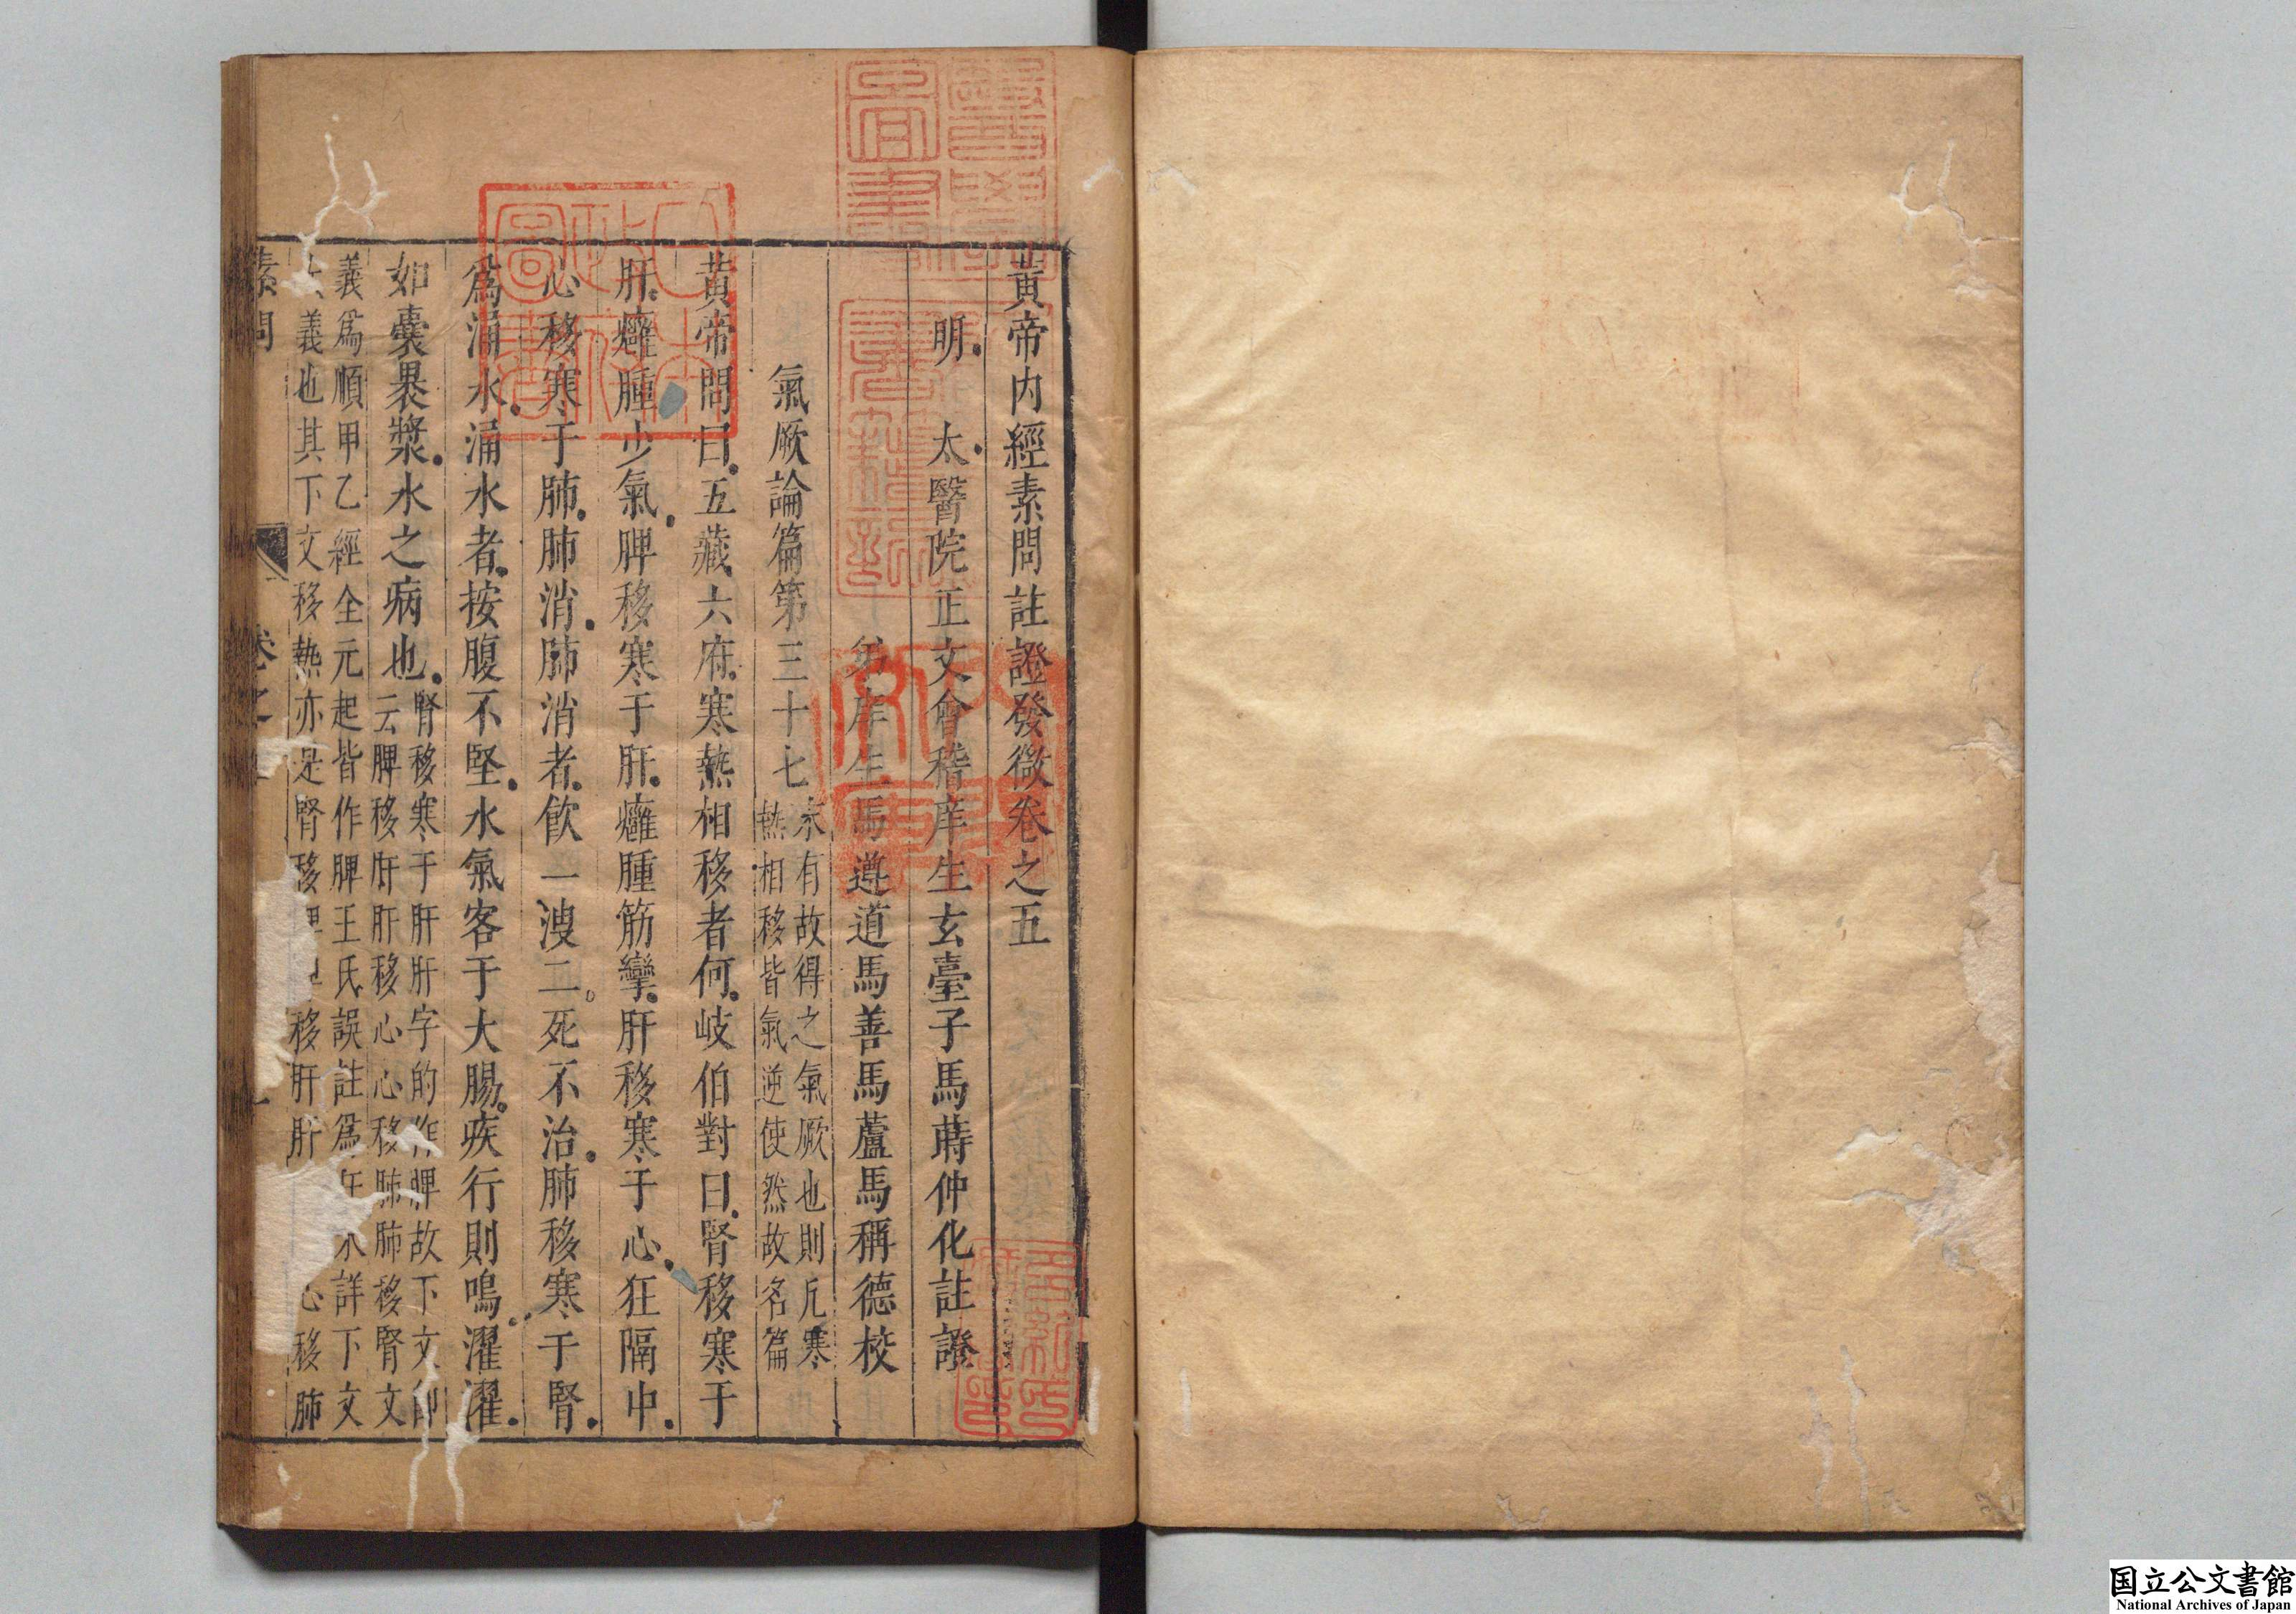 黃帝內經素問註證發微卷之五
明 太醫院正文會稽庠生玄臺子馬蒔仲化註證
弟庠生馬遵道馬善馬蘆馬稱德校
氣厥論篇第三十七
末有故得之氣厥也則凡寒
熱相移皆氣逆使然故名篇
黃帝問曰五藏六府寒熱相移者何岐伯對曰腎移寒于
肝癰腫少氣脾移寒于肝癰腫筋攣肝移寒于心狂隔中
心移寒于肺肺消肺消者飲一溲二死不治肺移寒于腎
爲涌水涌水者按腹不堅水氣客于大腸疾行則鳴濯濯
如囊裹漿水之病也
腎移寒于肝肝字的作脾故下文卽
云脾移肝肝移心心移肺肺移腎文
義爲順甲乙經全元起皆作脾王氏誤註爲 詳下文
義也其下文移熱亦是腎移 移肝肝 心移肺
素問
卷之五
国立公文書館
National Archives of Japan